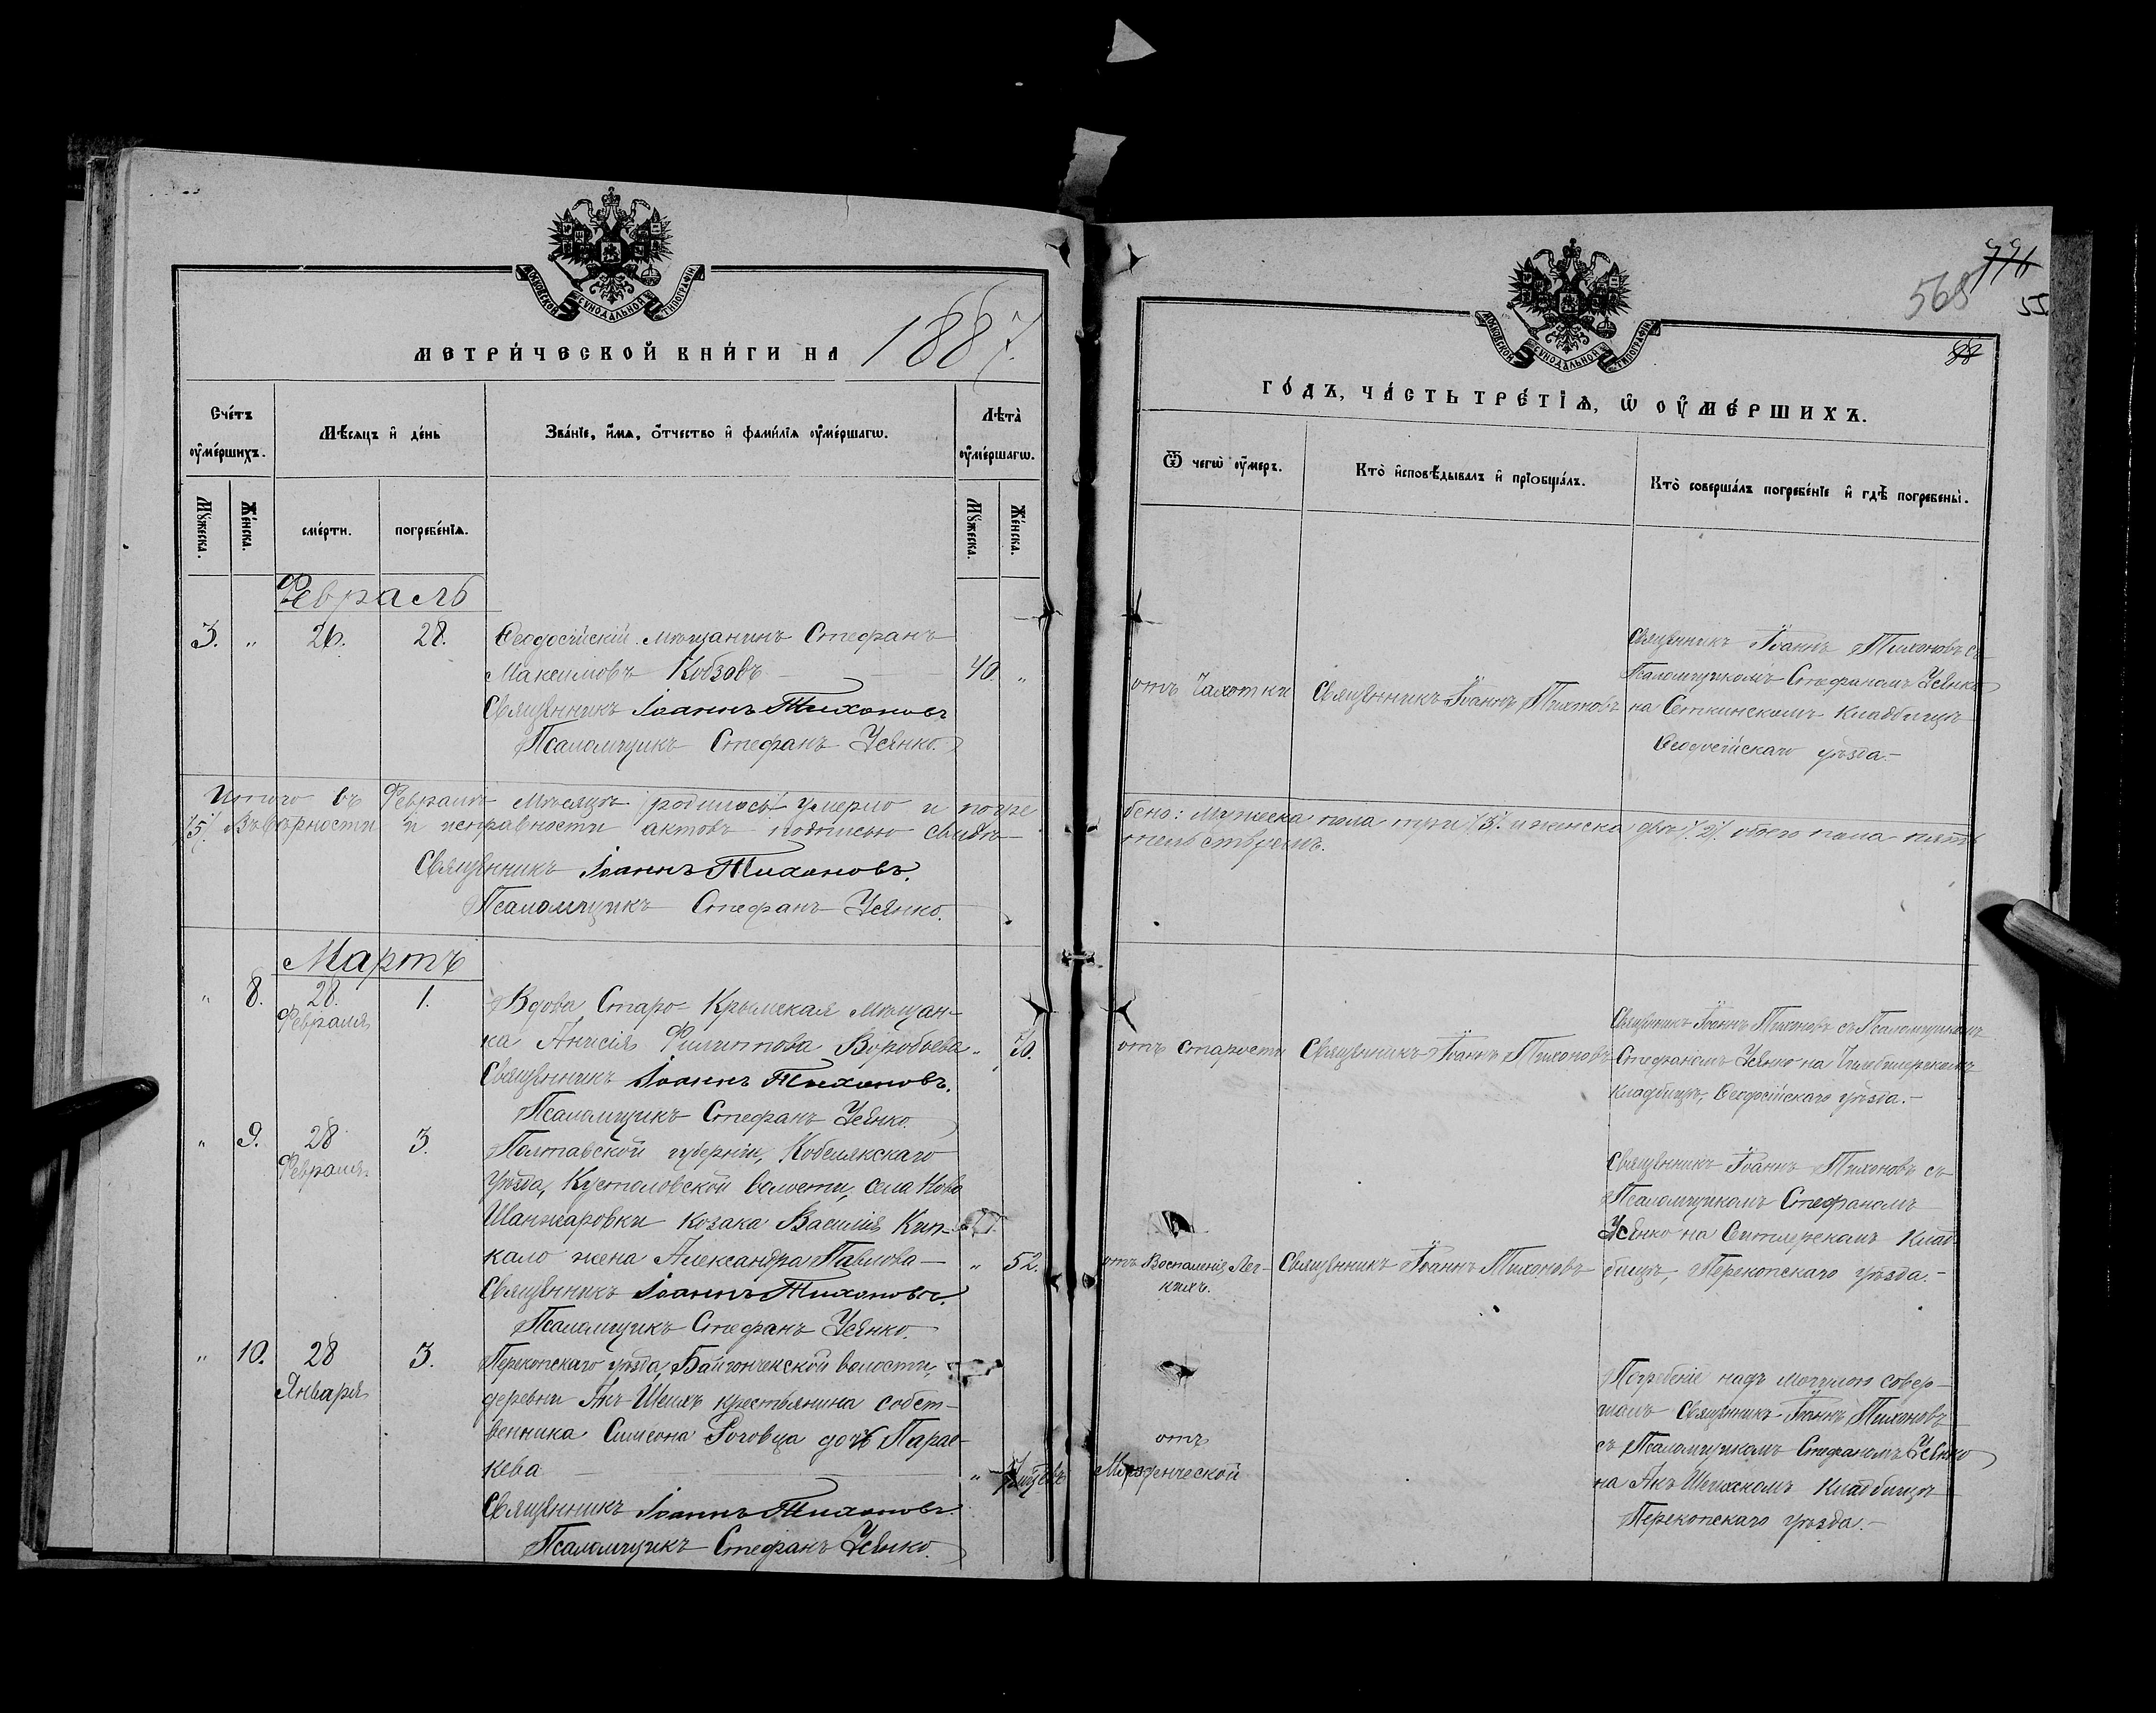 МОСКОВСКОЙ СѴНОДАЛЬНОЙ ТИПОГРАФІИ
МЕТРИ́ЧЕСКОЙ КНИ́ГИ НА 1887.
Сче́тъ оумершихъ.
Мѣсяцъ и де́нь
Зва́нїе, и́мѧ, о́тчество и фами́лїѧ оуме́ршагѡ.
Лѣта̀ оуме́ршагѡ.
Мꙋ́жеска.
Же́нска.
сме́рти.
погребе́нїѧ.
Мꙋ́жеска.
Же́нска.
Февраль
3. " 26. 28. Ѳеодосійскій мѣщанинъ Стефанъ
Максимовъ Кобзовъ — 40. "
Священникъ Іоаннъ Тихоновъ
Псаломщикъ Стефанъ Усенко.
Итого въ Февралѣ мѣсяцѣ родилось умерло и погре
/5/. Въ вѣрности и исправности актовъ подписью свидѣ-
Священникъ Іоаннъ Тихоновъ.
Псаломщикъ Стефанъ Усенко.
Мартъ
" 8. 28. Февраля 1. Вдова Старо-Крымская мѣщан-
ка Анисія Филиппова Воробьева "
Священникъ Іоаннъ Тихоновъ.
Псаломщикъ Стефанъ Усенко.
" 9. 28 Февраля 3. Полтавской губерніи, Кобелякскаго
уѣзда, Кустоловской волости, села Ново
Шанжаровки козака Василія Кип-
кало жена Александра Павлова — " 52.
Священникъ Іоаннъ Тихоновъ.
Псаломщикъ Стефанъ Усенко.
" 10. 28 Января 3. Перекопскаго уѣзда, Байгончекской волости,
деревни Акъ-Шеихъ крестьянина собст-
венника Симеона Роговца дочь Парас-
кева — "
Священникъ Іоаннъ Тихоновъ.
Псаломщикъ Стефанъ Усенко.
776
568
55.
88
ГО́ДЪ, ЧА́СТЬ ТРЕ́ТЇѦ, Ѡ ОУМЕ́РШИХЪ.
Ѿ чегѡ̀ оу́меръ.
Кто̀ и҆сповѣ́дывалъ и прїобща́лъ.
Кто̀ соверша́лъ погребе́нїе и гдѣ̀ погребены̀.
отъ Чахотки
Священникъ Іоаннъ Тихоновъ
Священникъ Іоаннъ Тихоновъ съ
Псаломщикомъ Стефаномъ Усенко
на Сеткинскомъ кладбищѣ
Ѳеодосійскаго уѣзда.—
бено: мужеска пола три /3/. и женска двѣ /2/. обоего пола пять
тельствуемъ.
отъ старости
Священникъ Іоаннъ Тихоновъ
Священникъ Іоаннъ Тихоновъ съ Псаломщикомъ
Стефаномъ Усенко на
кладбищѣ, Ѳеодосійскаго уѣзда.—
отъ Воспаленія Лег-
кихъ.
Священникъ Іоаннъ Тихоновъ
Священникъ Іоаннъ Тихоновъ съ
Псаломщикомъ Стефаномъ
Усенко на Ситлерскомъ клад-
бищѣ, Перекопскаго уѣзда.—
отъ
Младенческой
Погребеніе надъ могилою совер-
шалъ Священникъ Іоаннъ Тихоновъ
съ Псаломщикомъ Стефаномъ Усенко
на Акъ-Шеихскомъ кладбищѣ
Перекопскаго уѣзда.—